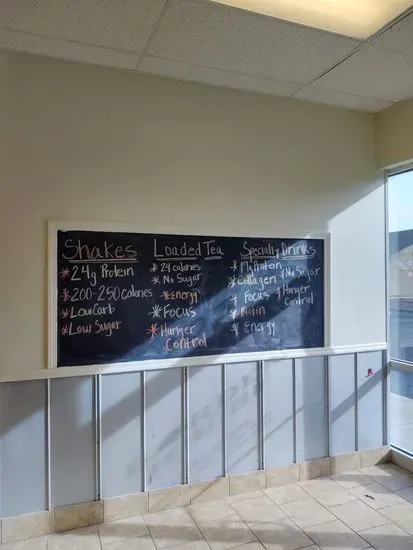 Shakes
* 24g Protein
* 200-250 calories
* Low Carb
* Low Sugar
Loaded Tea
* 24 calories
* No Sugar
* Energy
* Focus
* Hunger
Control
Specialty Drinks
* Collagen
* No Sugar
* Focus
* Hunger
Control
* Biotin
* Energy